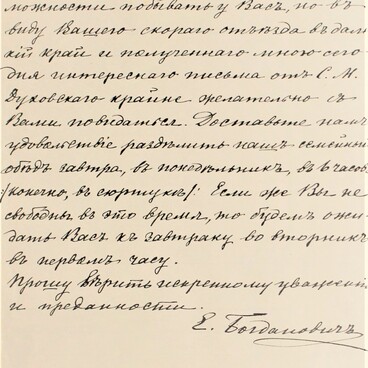 можности побывать у Васъ, но въ
виду Вашего скораго отъѣзда въ дале
кій край и полученнаго мною сего
дня интереснаго письма отъ С. М.
Духовскаго крайне желательно съ
Вами повидаться. Доставьте намъ
удовольствіе раздѣлить нашъ семейный
обѣдъ завтра, въ понедѣльникъ, въ 6 часов
/конечно, въ сюртукѣ/. Если же Вы не
свободны въ это время, то будемъ ожи
дать Васъ къ завтраку во вторникъ
въ первомъ часу.
Прошу вѣрить искреннему уваженію
и преданности.
Е. Богдановичъ